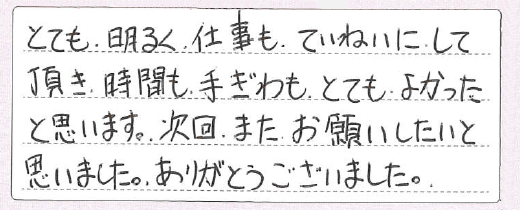 とても、明るく、仕事も、ていねいに、して
頂き、時間も、手ぎわも、とても、よかった
と思います。次回、また、お願いしたいと
思いました。ありがとうございました。